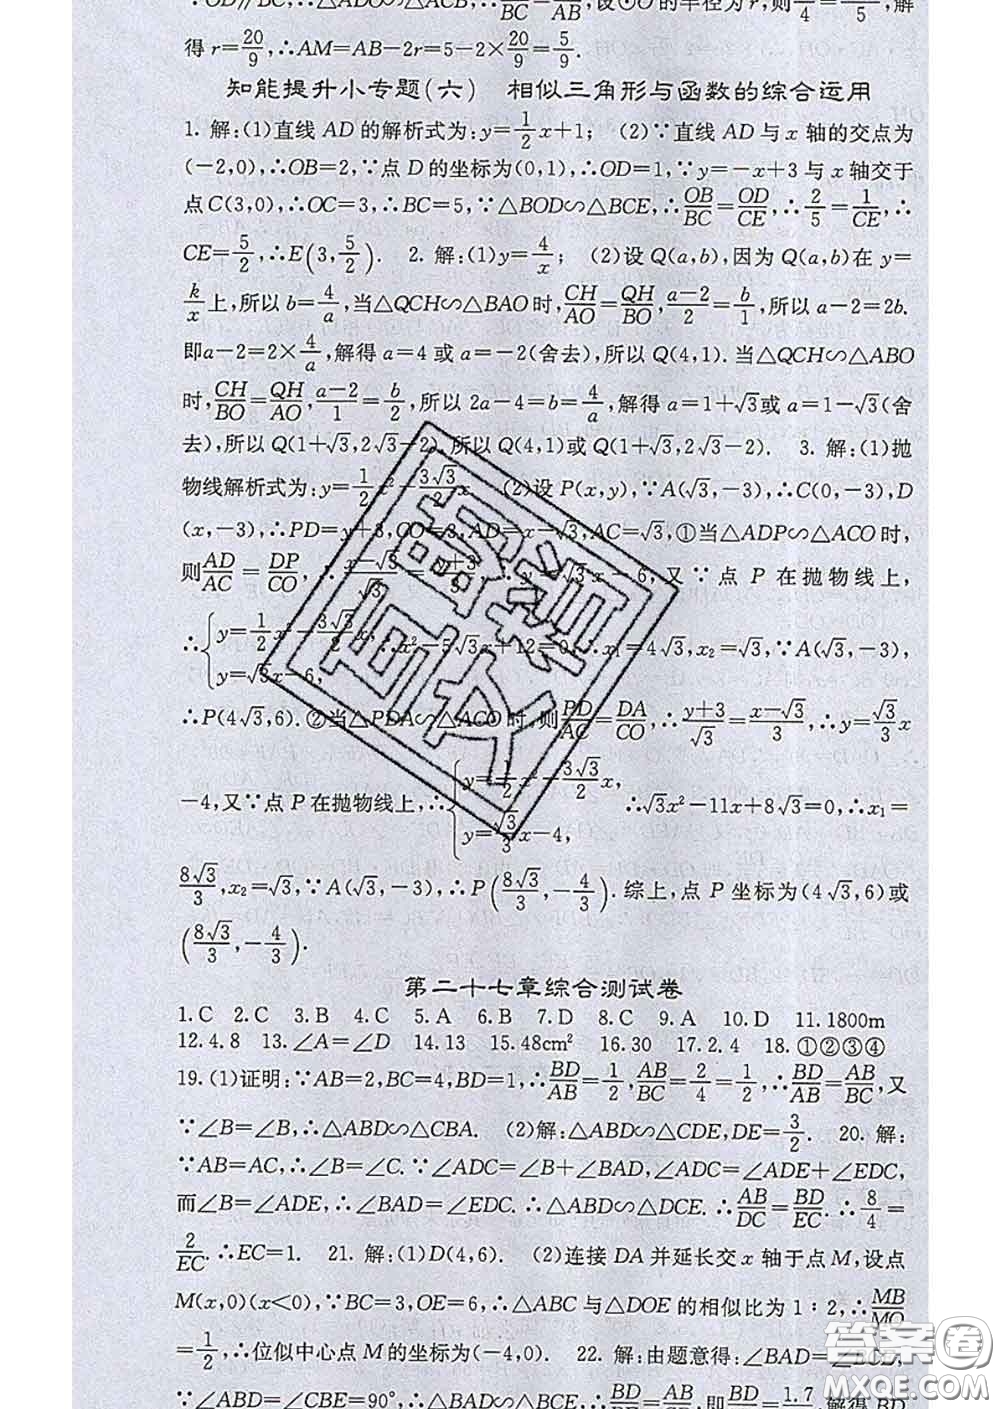 ∵OD∥BC,∴△ADO∽△ACB,∴ BC = AB,设⊙O的半径为r,则 4 = 5,解
得r=20/9,∴AM=AB-2r=5-2×20/9=5/9.
知能提升小专题(六) 相似三角形与函数的综合运用
1. 解:(1)直线AD的解析式为:y=1/2x+1; (2)∵直线AD与x轴的交点为
(-2,0),∴OB=2,∵点D的坐标为(0,1),∴OD=1,∵y=-x+3与x轴交于
点C(3,0),∴OC=3,∴BC=5,∵△BOD∽△BCE,∴OB/BC=OD/CE,∴2/5=1/CE,∴
CE=5/2,∴E(3,5/2). 2. 解:(1)y=4/x; (2)设Q(a,b),因为Q(a,b)在y=
k/x上,所以b=4/a,当△QCH∽△BAO时,CH/AO=QH/BO,a-2/2=b/1,所以a-2=2b.
即a-2=2×4/a,解得a=4或a=-2(舍去),所以Q(4,1).当△QCH∽△ABO
时,CH/BO=QH/AO,a-2/1=b/2,所以2a-4=b=4/a,解得a=1+√3或a=1-√3(舍
去),所以Q(1+√3,2√3-2).所以Q(4,1)或Q(1+√3,2√3-2). 3. 解:(1)抛
物线解析式为:y=1/2x²-3√3/2x (2)设P(x,y),∵A(√3,-3),∴C(0,-3),D
(x,-3),∴PD=y+3,CO=3,AD=x-√3,AC=√3,①当△ADP∽△ACO时,
则AD/AC=DP/CO,∴x-√3/√3=y+3/3,∴y=√3x-6,又∵点P在抛物线上,
∴{y=1/2x²-3√3/2x,y=√3x-6,∴x²-5√3x+12=0,∴x₁=4√3,x₂=√3,∵A(√3,-3),
∴P(4√3,6).②当△PDA∽△ACO时,则PD/AC=DA/CO,∴y+3/√3=x-√3/3,∴y=√3/3x
-4,又∵点P在抛物线上,∴{y=1/2x²-3√3/2x,y=√3/3x-4,∴√3x²-11x+8√3=0,∴x₁=
8√3/3,x₂=√3,∵A(√3,-3),∴P(8√3/3,-4/3).综上,点P坐标为(4√3,6)或
(8√3/3,-4/3).
第二十七章综合测试卷
1.C 2.C 3.B 4.C 5.A 6.B 7.D 8.C 9.A 10.D 11.1800m
12.4.8 13.∠A=∠D 14.13 15.48cm² 16.30 17.2.4 18.①②③④
19.(1)证明:∵AB=2,BC=4,BD=1,∴BD/AB=1/2,AB/BC=2/4=1/2,∴BD/AB=AB/BC,又
∵∠B=∠B,∴△ABD∽△CBA. (2)解:△ABD∽△CDE,DE=3/2. 20. 解:
∵AB=AC,∴∠B=∠C.∵∠ADC=∠B+∠BAD,∠ADC=∠ADE+∠EDC,
而∠B=∠ADE,∴∠BAD=∠EDC.∴△ABD∽△DCE.∴AB/DC=BD/EC.∴8/4=
2/EC.∴EC=1. 21. 解:(1)D(4,6). (2)连接DA并延长交x轴于点M,设点
M(x,0)(x<0),∵BC=3,OE=6,∴△ABC与△DOE的相似比为1:2,∴MB/MO
=1/2,∴位似中心点M的坐标为(-4,0). 22. 解:由题意得:∠BAD=∠BCD,
∵∠ABD=∠CBE=90°,∴△BAD∽△BCE,∴BD = AB,即BD = 1.7,解得BD
答案圈
MXQE.COM